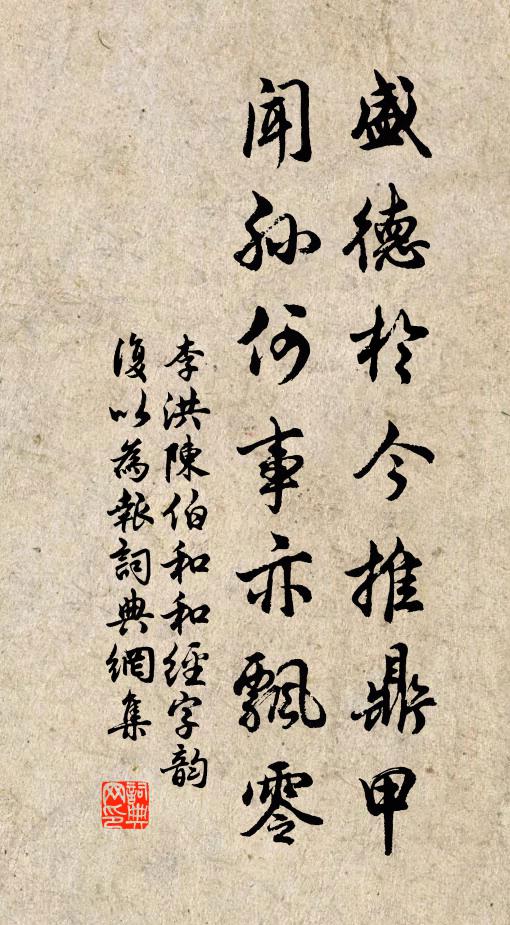 盛德於今推鼎甲
聞孫何事亦飄零
李洪陳伯和和經字韵
復以為報詞典網集
詞典网印